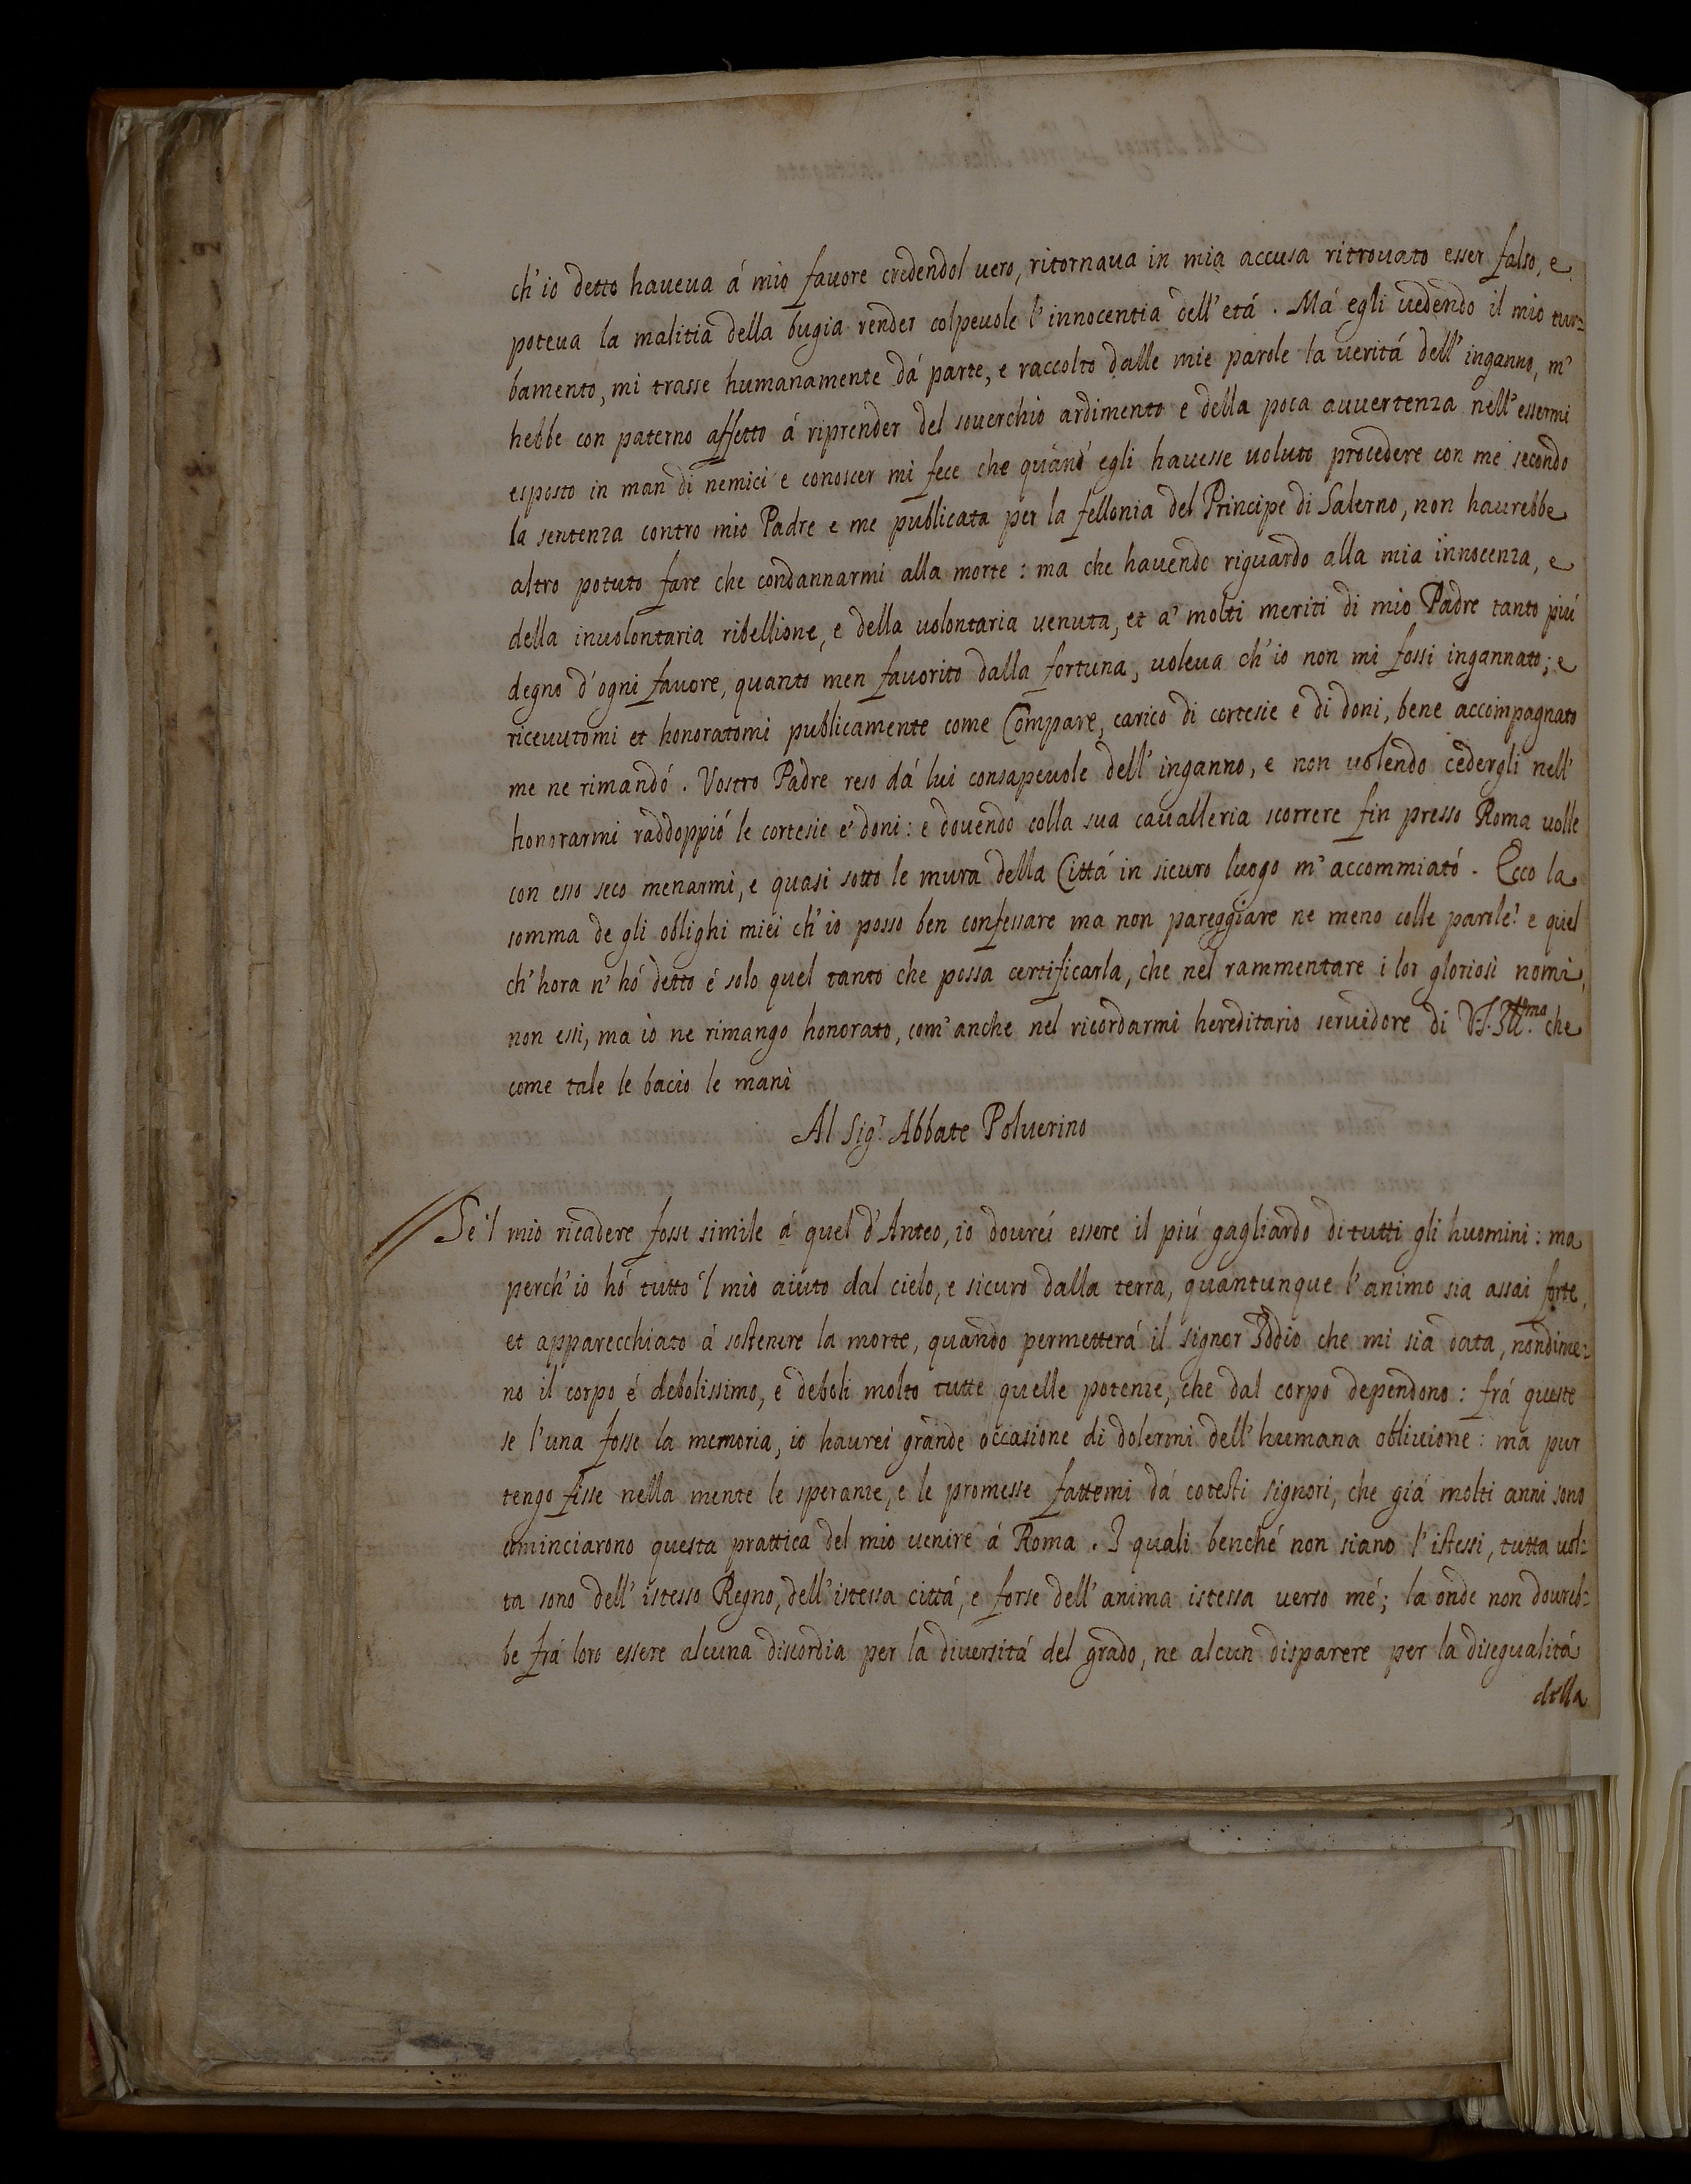 ch'io detto haueua á mio fauore credendol uero, ritornaua in mia accusa ritrouato esser falso, e
poteua la malitia della bugia render colpeuole l'innocentia dell'etá. Má egli uedendo il mio tur=
bamento, mi trasse humanamente dá parte, e raccolto dalle mie parole la veritá dell'inganno, m'
hebbe con paterno affetto á riprender del souerchio ardimento e della poca auuertenza nell'essermi
esposto in man di nemici e conoscer mi fece che quand' egli hauesse uoluto procedere con me secondo
la sentenza contro mio Padre e me publicata per la fellonia del Principe di Salerno, non haurebbe
altro potuto fare che condannarmi alla morte: ma che hauendo riguardo alla mia innocenza, e
della inuolontaria ribellione, e della uolontaria uenuta, et a' molti meriti di mio Padre tanto piú
degno d'ogni fauore, quanto men fauorito dalla fortuna, uoleua ch'io non mi fossi ingannato; e
riceuutomi et honoratomi publicamente come Compare, carico di cortesie e di doni, bene accompagnato
me ne rimandó. Vostro Padre reso dá lui consapeuole dell'inganno, e non uolendo cedergli nell'
honorarmi raddoppió le cortesie e' doni: e douendo colla sua caualleria scorrere fin presso Roma uolle
con esso seco menarmi, e quasi sotto le mura della Cittá in sicuro luogo m'accommiató. Ecco la
somma de gli oblighi miei ch'io posso ben confessare ma non pareggiare ne meno colle parole: e quel
ch'hora n'hó detto é solo quel tanto che possa certificarla, che nel rammentare i lor gloriosi nomi,
non essi, ma io ne rimango honorato, com'anche nel ricordarmi hereditario seruidore di V.S. Ill.ma che
come tale le bacio le mani
Al Sig.r Abbate Poluerino
Se'l mio ricadere fosse simile á quel d'Anteo, io dourei essere il piú gagliardo di tutti gli huomini: ma
perch'io hó tutto 'l mio aiuto dal cielo, e sicuro dalla terra, quantunque l'animo sia assai forte,
et apparecchiato á sostenere la morte, quando permetterá il signor Iddio che mi sia data, nondime=
no il corpo é debolissimo, e deboli molto tutte quelle potenze, che dal corpo dependono: frá queste
se l'una fosse la memoria, io haurei grande occasione di dolermi dell'humana obliuione: ma pur
tengo fisse nella mente le speranze, e le promesse fattemi dá cotesti signori, che giá molti anni sono
cominciarono questa prattica del mio uenire á Roma. I quali benché non siano l'istessi, tutta uol=
ta sono dell'istesso Regno, dell'istessa cittá, e forse dell'anima istessa uerso mé; la onde non doureb=
be frá loro essere alcuna discordia per la diuersitá del grado, ne alcun disparere per la disegualitá
della